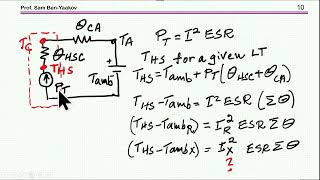 Prof. Sam Ben-Yaakov
10
T_C
θ_CA
T_A
θ_HSC
T_HS
P_T
T_amb
P_T = I² ESR
T_HS for a given LT
T_HS = T_amb + P_T (θ_HSC + θ_CA)
T_HS - T_amb = I² ESR (Σθ)
(T_HS - T_ambR) = I_R² ESR Σθ
(T_HS - T_ambX) = I_X² ESR Σθ
?